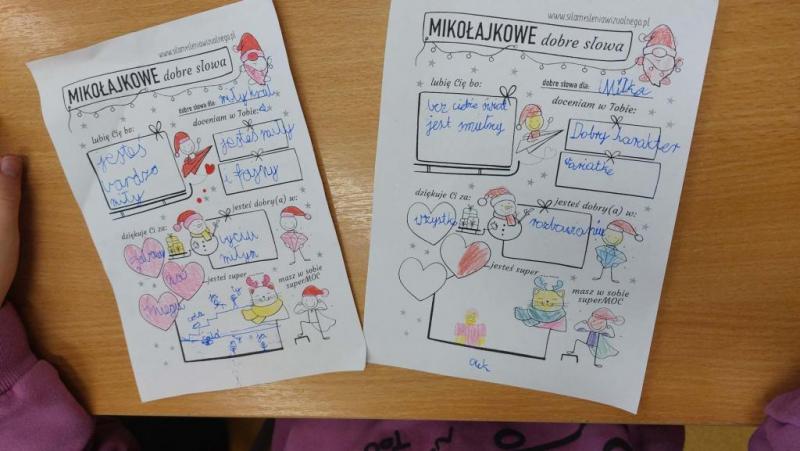 www.silamysleniawizualnego.pl
MIKOŁAJKOWE dobre słowa
dobre słowa dla:
lubię Cię bo:
jesteś
bardzo
miły
doceniam w Tobie:
jesteś miły
i fajny
dziękuję Ci za:
jesteś dobry(a) w:
byciu
miłym
jesteś super
masz w sobie
superMOC
www.silamysleniawizualnego.pl
MIKOŁAJKOWE dobre słowa
dobre słowa dla: Milka
lubię Cię bo:
bez ciebie świat
jest smutny
doceniam w Tobie:
Dobry harakter
dziękuję Ci za:
wszystko
jesteś dobry(a) w:
rozbawianiu
jesteś super
masz w sobie
superMOC
TOU